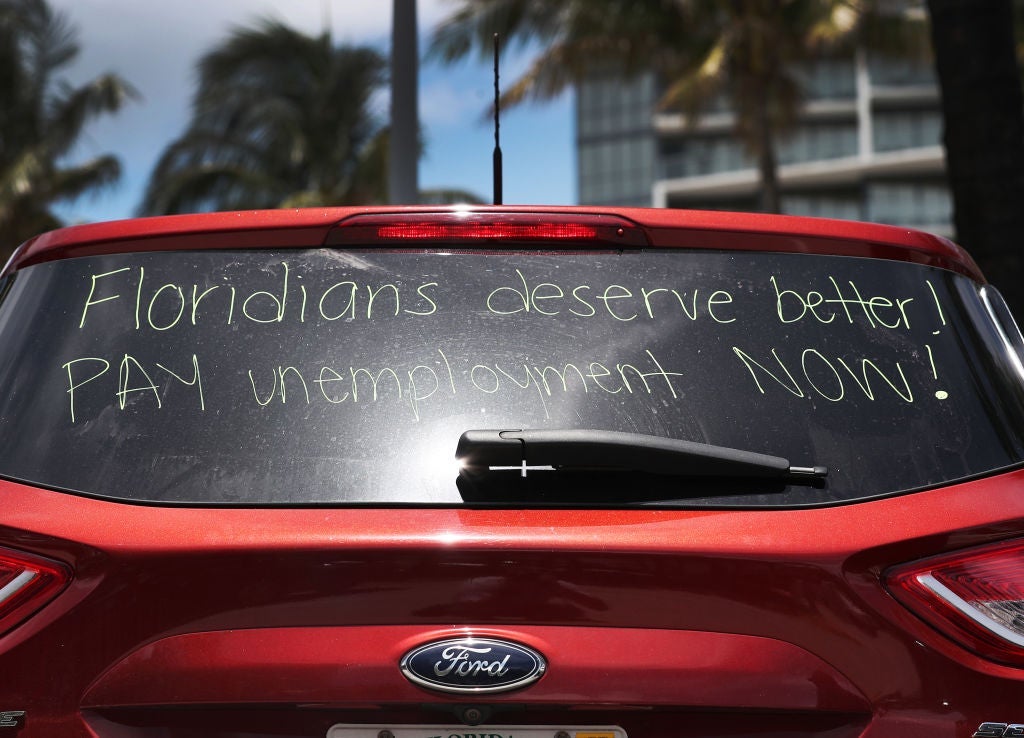 Floridians deserve better!
PAY unemployment NOW!
Ford